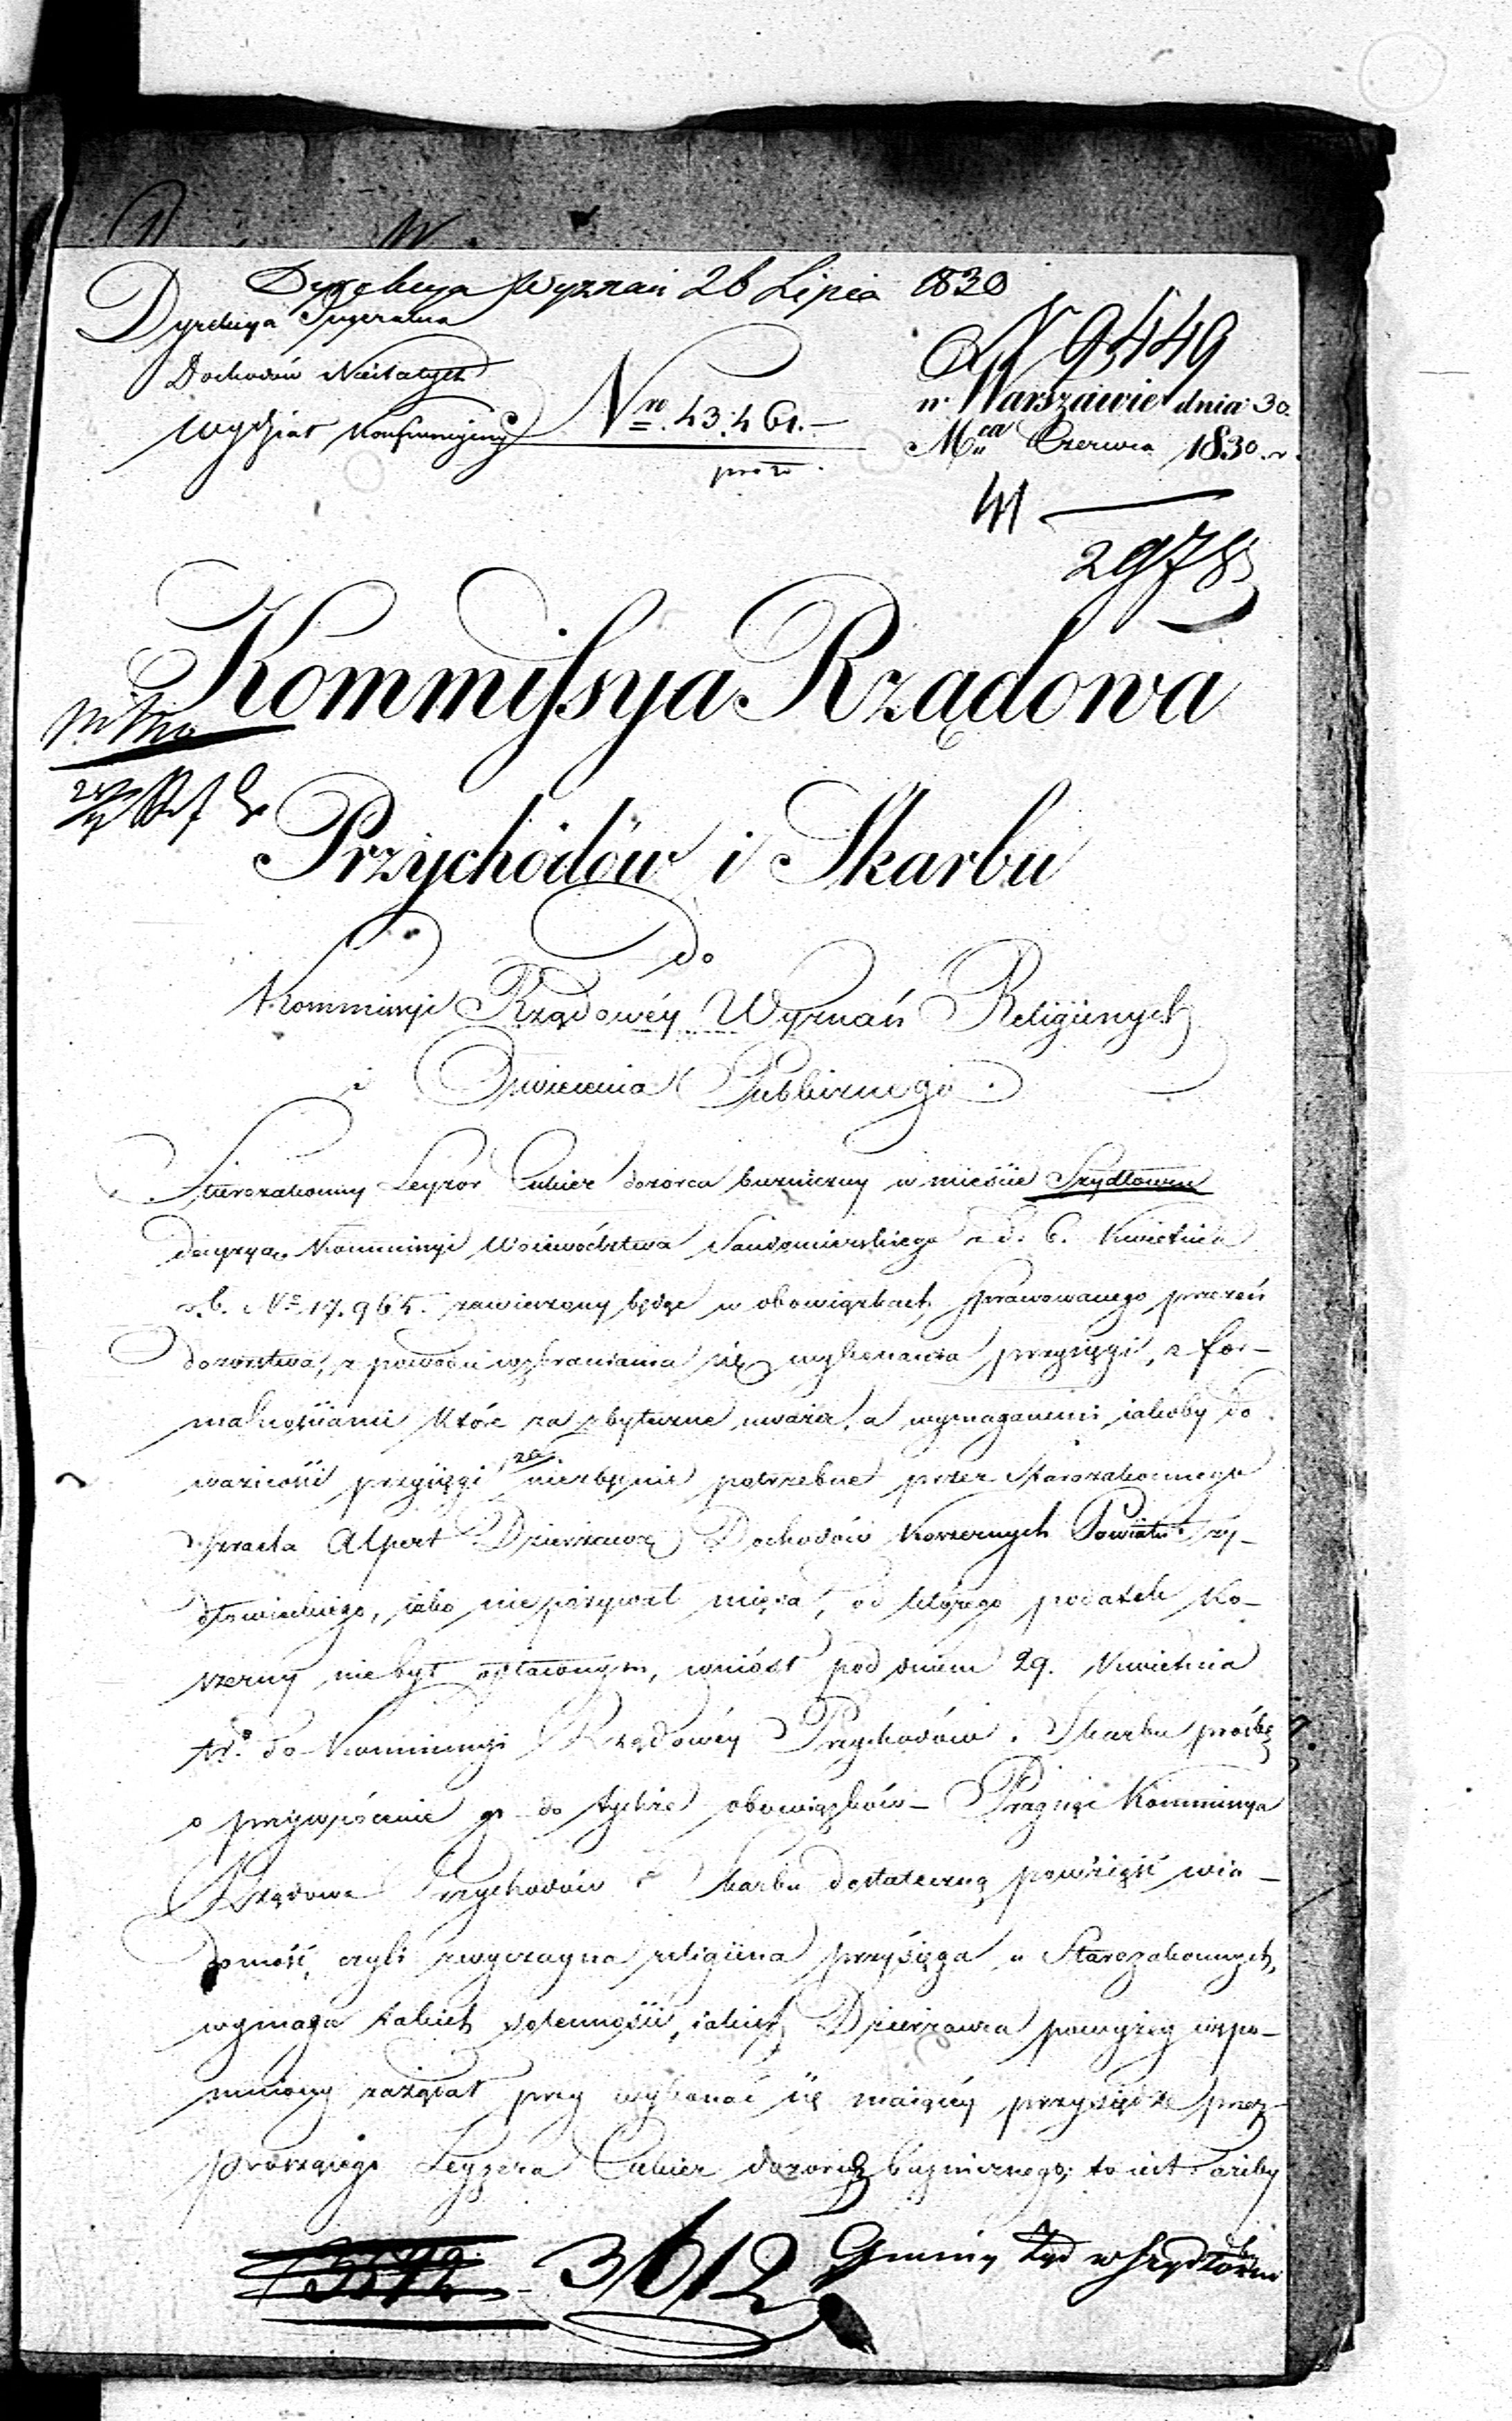 Dyrekcya Wyznań 26 Lipca 1830
Dyrekcya Jeneralna
N 9449
Dochodów Niestałych
w Warszawie dnia 30.
Wydział Konsumcyjny
Nro. 43,461.
Mca Czerwca 1830. r.
2978
Kommissya Rządowa
Przychodów i Skarbu
Do
Kommissyi Rządowéy Wyznań Religiinych
i Oświecenia Publicznego.
Starozakonny Leyzor Cukier dozorca bużniczny w mieście Szydłowcu
decyzyą Kommissyi Woiewództwa Sandomierskiego z d. 6. Kwietnia
r. b. No. 17.965. zawieszony będąc w obowiązkach sprawowanego przezeń
dozorstwa, z powodu wzbraniania się wykonania przysięgi, z for-
malnościami które za zbyteczne uważa, a wymaganemi iakoby do
ważności przysięgi za niezbędnie potrzebne przez Starozakonnego
Izraela Alpert Dzierżawcę Dochodów Koszernych Powiatu Szy-
dłowieckiego, iako nie pożywał mięsa, od którego podatek Ko-
szerny nie był opłaconym, wniósł pod dniem 29. Kwietnia
t. r. do Kommissyi Rządowéy Przychodów i Skarbu prośbę
o przywrócenie go do tychże obowiązków - Pragnąc Kommissya
Rządowa Przychodów i Skarbu dostateczną powziąść wia-
domość, czyli zwyczayna religiina przysięga u Starozakonnych,
wymaga takich solenności, iakich Dzierżawca powyżey wspo-
mniony zażądał przy wykonać się maiącéy przysiędze przez
proszącego Leyzera Cukier dozorcę bużnicznego; to iest: ażeby
3612
Gminy Żyd w Szydłowcu